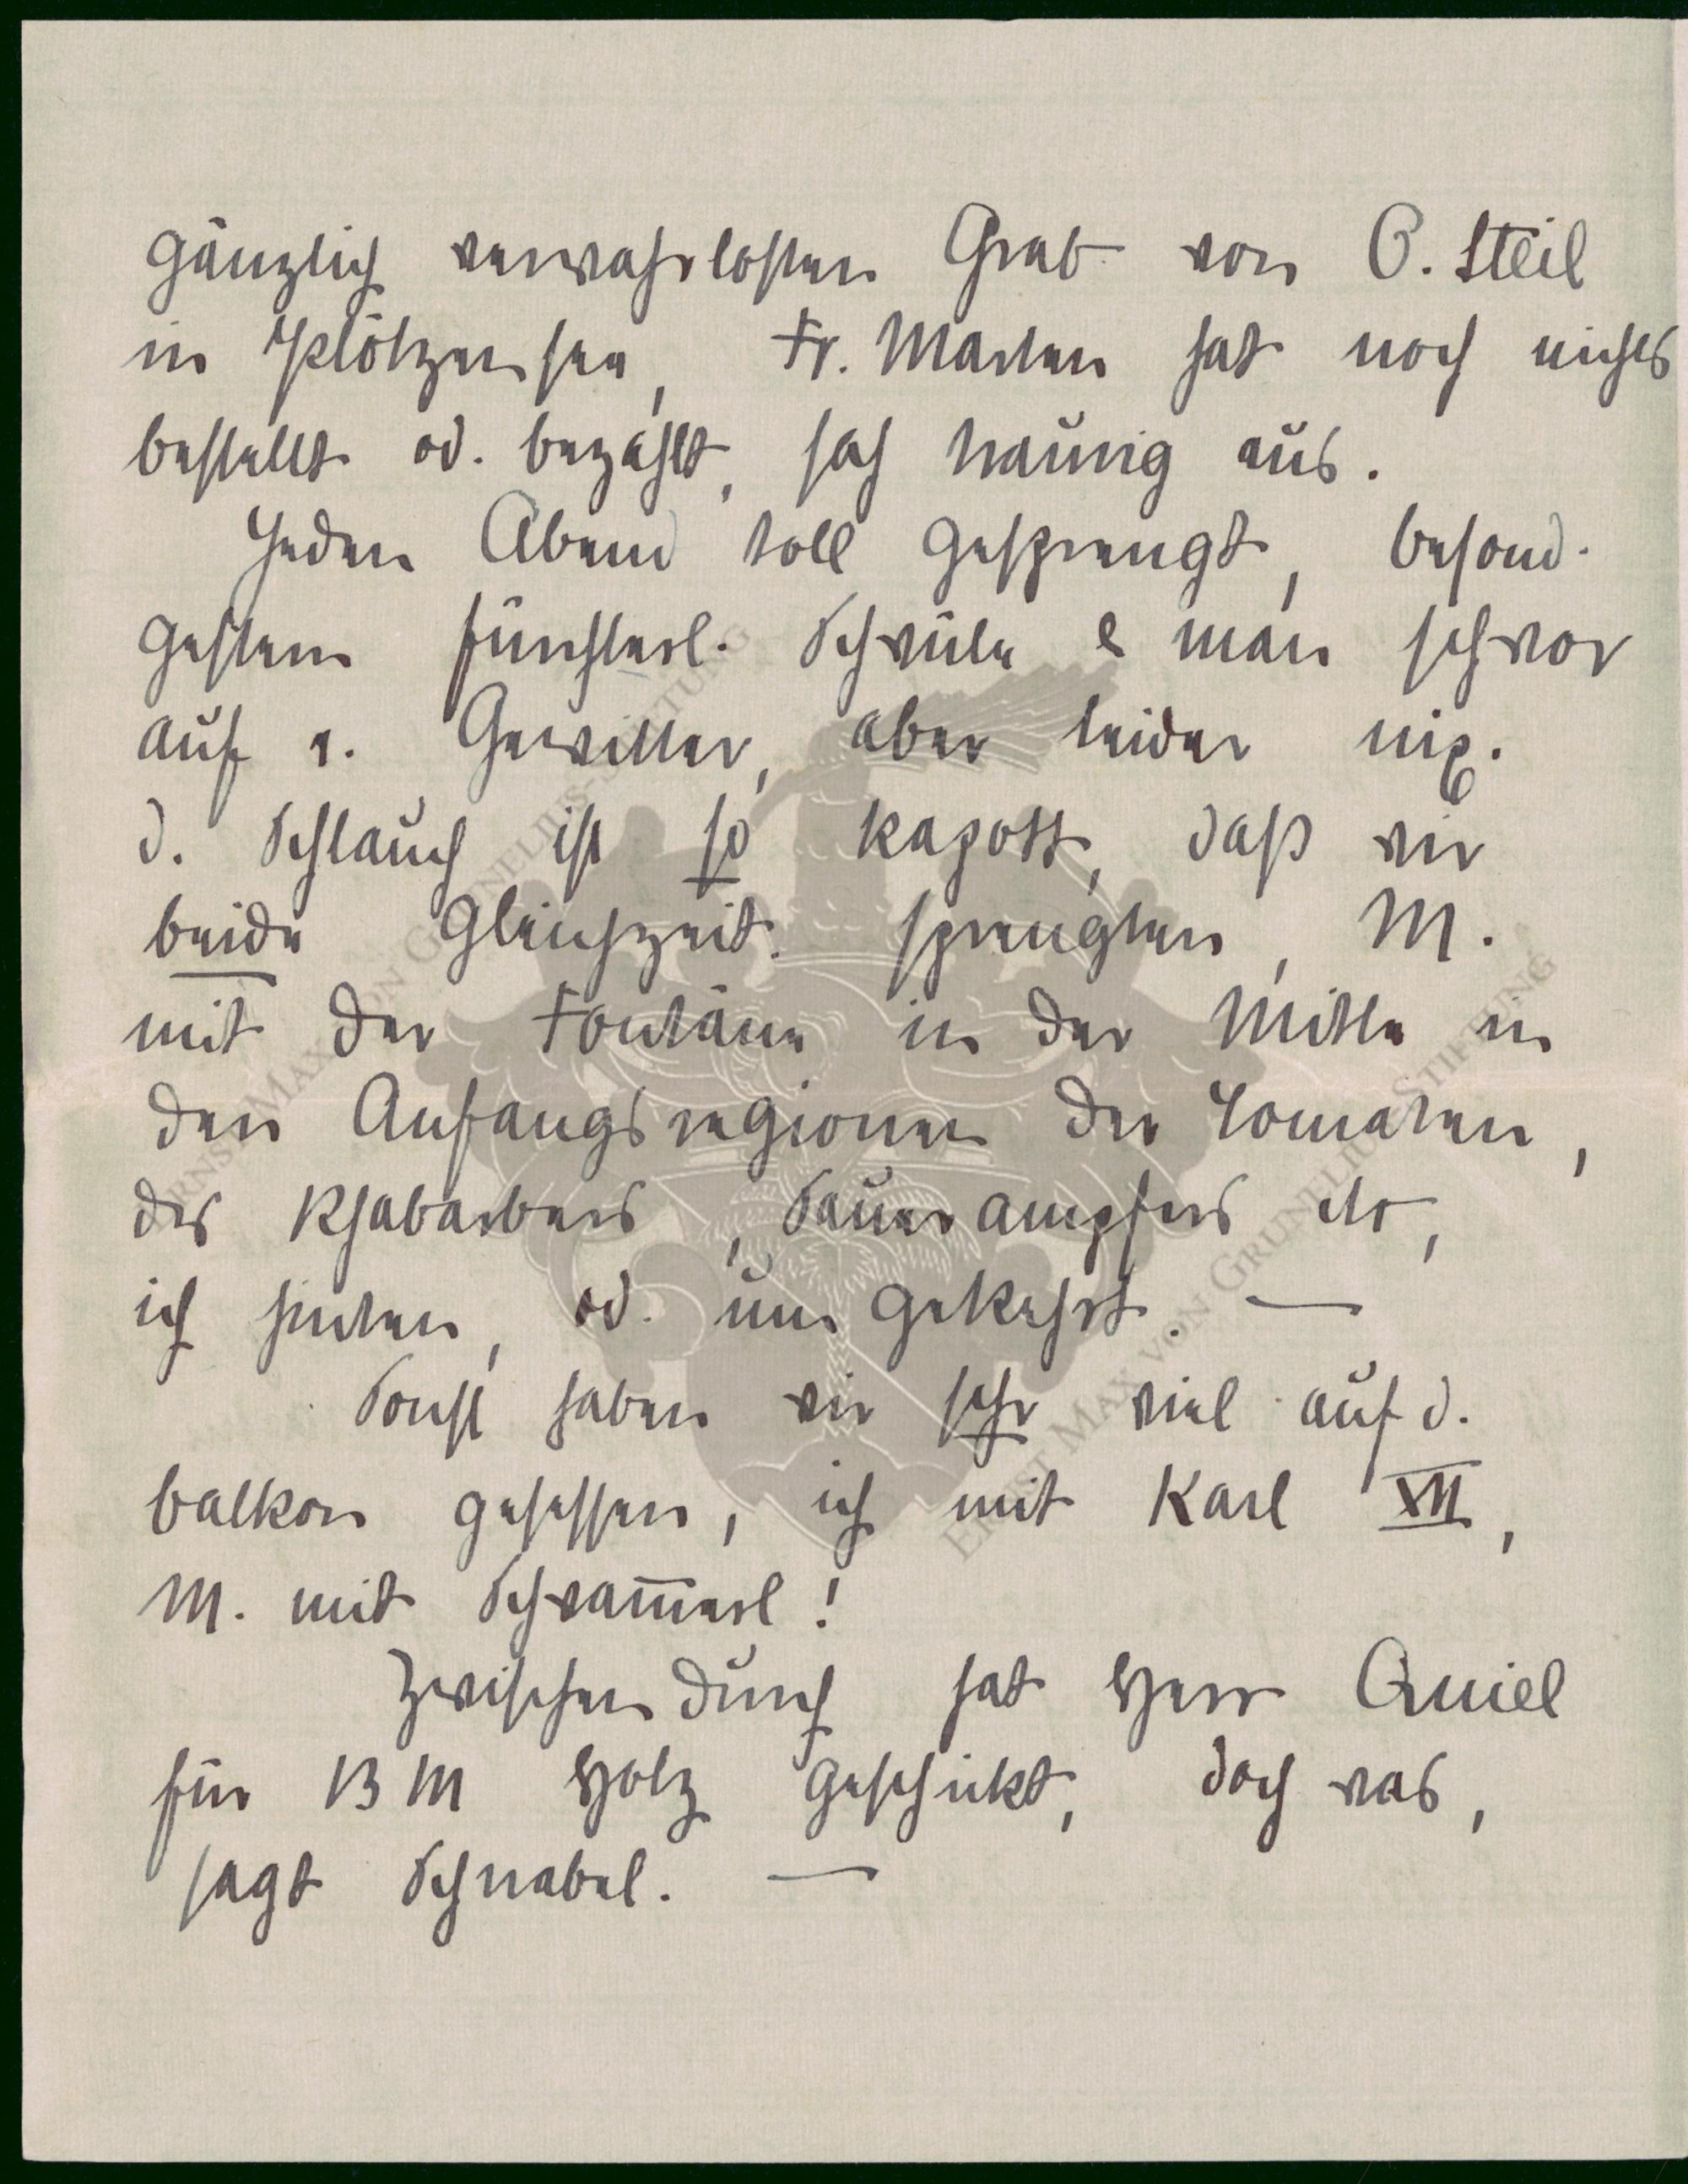 gänzlich verwahrlosten Grab von O. Steil
in Plötzensee, Fr. Marten hat noch nichts
bestellt od. bezahlt, sah traurig aus.
Jeden Abend toll gesprengt, besond.
gestern fürchterl. Schwüle & man schwor
auf 1. Gewitter, aber leider nix.
d. Schlauch ist so kapott, daß wir
beide gleichzeit. sprengten, M.
mit der Fontäne in der Mitte in
den Anfangsregionen der Tomaten,
des Rhabarbers, Sauerampfers etc,
ich hinten, od. umgekehrt. —
Sonst haben wir sehr viel auf d.
Balkon gesessen, ich mit Karl XII,
M. mit Schwam̅erl!
Zwischendurch hat Herr Quiel
für 13 M Holz geschickt, doch was,
sagt Schnabel. —
ERNST MAX VON GRUNELIUS-STIFTUNG
ERNST MAX VON GRUNELIUS-STIFTUNG